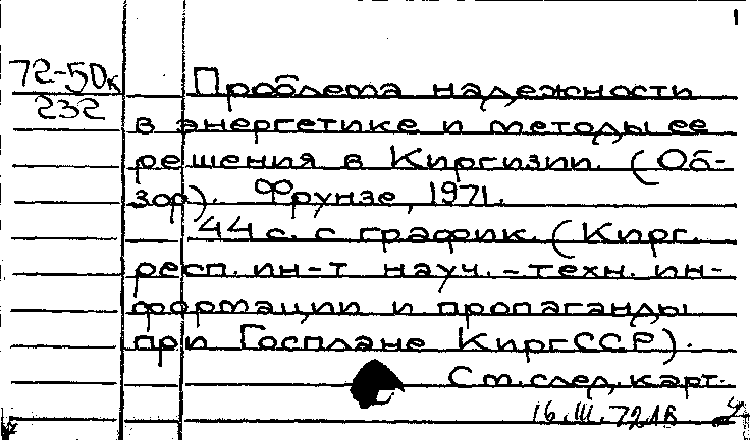 1
72-50к
232
Проблема надежности
в энергетике и методы ее
решения в Киргизии. (Об-
зор). Фрунзе, 1971.
44 с. с график. (Кирг.
респ. ин-т науч.-техн. ин-
формации и пропаганды
при Госплане КиргССР).
См. след. карт.
16.III.72